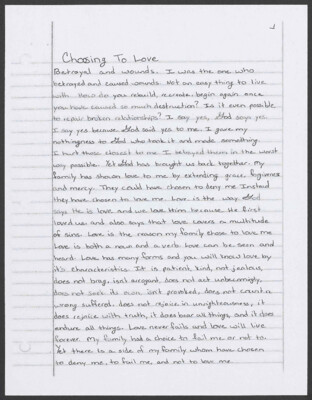 1
Choosing To Love
Betrayal and wounds. I was the one who
betrayed and caused wounds. Not an easy thing to live
with. How do you rebuild, recreate, begin again once
you have caused so much destruction? Is it even possible
to repair broken relationships? I say yes, God says yes.
I say yes because God said yes to me. I gave my
nothingness to God who took it and made something.
I hurt those closest to me. I betrayed them in the worst
way possible. Yet God has brought us back together. My
family has shown love to me by extending grace, forgiveness
and mercy. They could have chosen to deny me Instead
they have chosen to love me. Love is the way. God
says He is love and we love Him because He first
loved us and also says that love covers a multitude
of sins. Love is the reason my family chose to love me.
Love is both a noun and a verb. Love can be seen and
heard. Love has many forms and you will know love by
it's characteristics. It is patient, kind, not jealous,
does not brag, isn't arrogant, does not act unbecomingly,
does not seek its own, isn't provoked, does not count a
wrong suffered, does not rejoice in unrighteousness, it
does rejoice with truth, it does bear all things and it does
endure all things. Love never fails and love will live
forever. My family had a choice to fail me or not to.
Yet there is a side of my family whom have chosen
to deny me, to fail me, and not to love me.